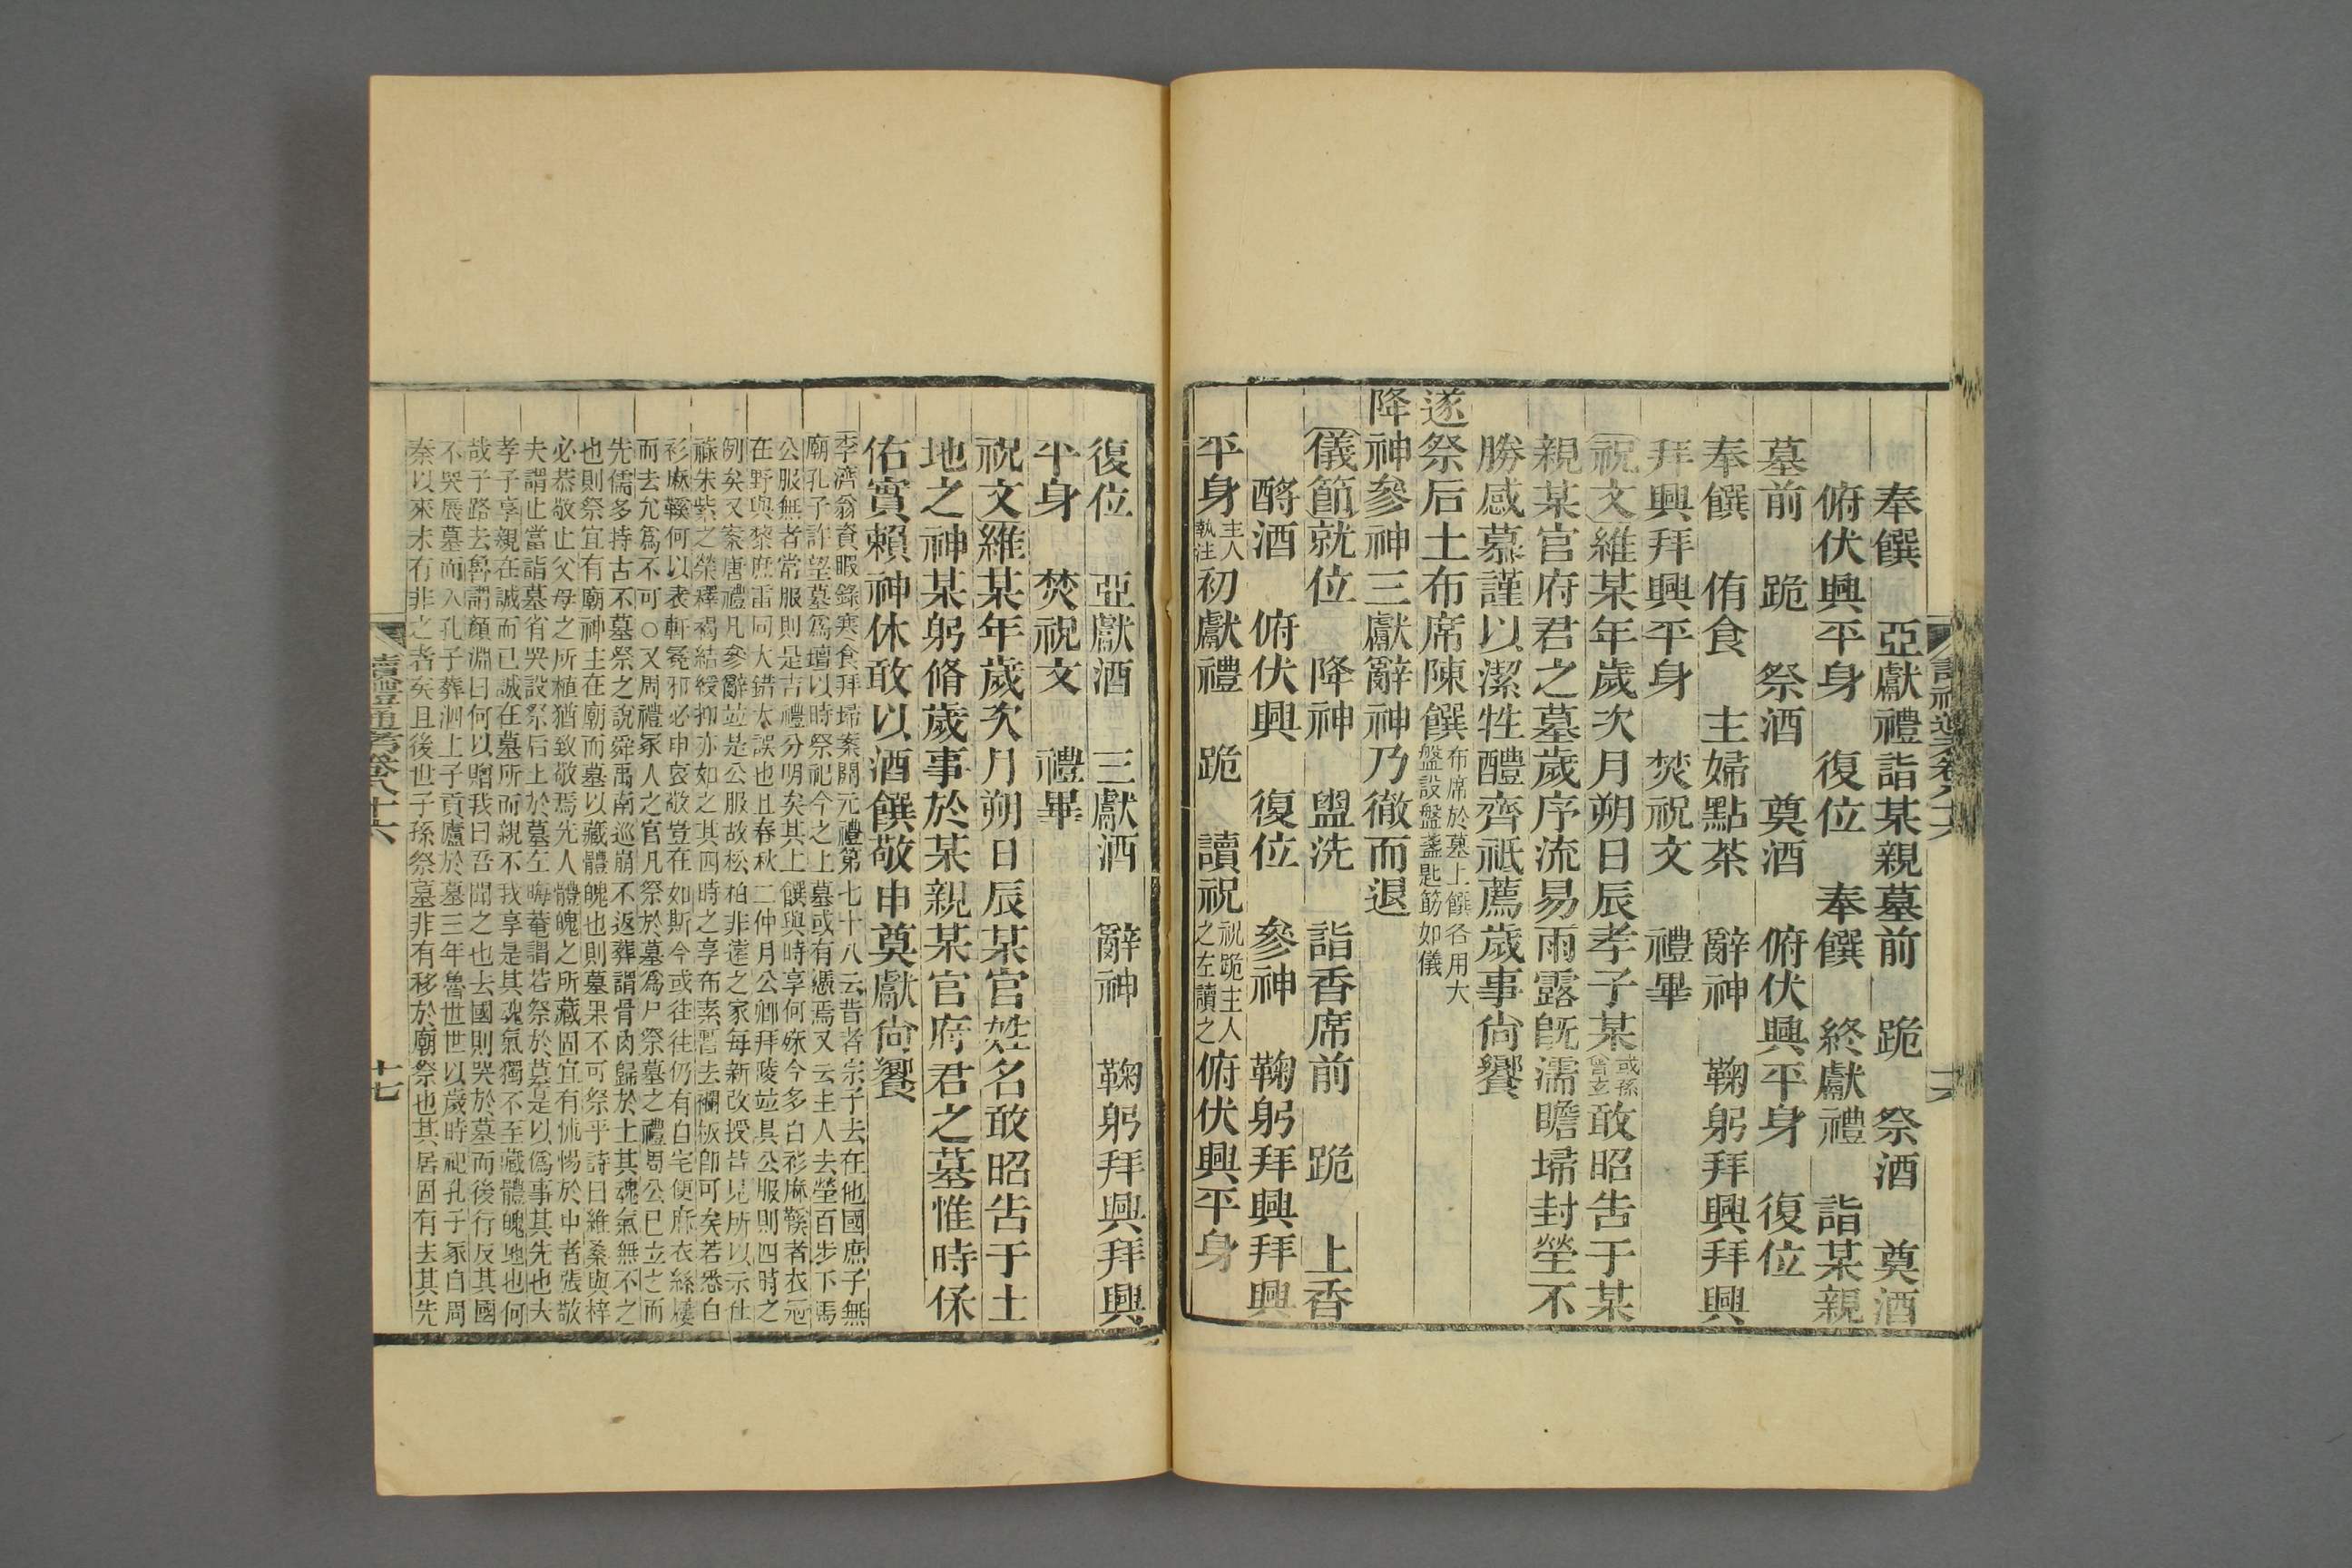 讀禮通考卷八十六　十六
奉饌　亞獻禮詣某親墓前　跪　祭酒　奠酒
俯伏興平身　復位　奉饌　終獻禮　詣某親
墓前　跪　祭酒　奠酒　俯伏興平身　復位
奉饌　侑食　主婦點茶　辭神　鞠躬拜興拜興
拜興拜興平身　焚祝文　禮畢
祝文維某年歲次月朔日辰孝子某或孫曾玄敢昭告于某
親某官府君之墓歲序流易雨露旣濡瞻埽封塋不
勝感慕謹以潔牲醴齊祗薦歲事尙饗
遂祭后土布席陳饌布席於墓上饌各用大盤設盤盞匙筯如儀
降神參神三獻辭神乃徹而退
儀節就位　降神　盥洗　詣香席前　跪　上香
酹酒　俯伏興　復位　參神　鞠躬拜興拜興
平身主人執注初獻禮　跪　讀祝祝跪主人之左讀之俯伏興平身
復位　亞獻酒　三獻酒　辭神　鞠躬拜興拜興
平身　焚祝文　禮畢
祝文維某年歲次月朔日辰某官姓名敢昭告于土
地之神某躬脩歲事於某親某官府君之墓惟時保
佑實賴神休敢以酒饌敬申奠獻尙饗
李濟翁資暇錄寒食拜埽案開元禮第七十八云昔者宗子去在他國庶子無
廟孔子許望墓爲壇以時祭祀今之上墓或有憑焉又云主人去塋百步下馬
公服無者常服則是吉禮分明矣其上饌與時享何殊今多白衫麻鞵者衣冠
在野與黎庶雷同大錯大誤也且春秋二仲月公卿拜陵竝具公服則四時之
例矣又案唐禮凡參辭竝是公服故松柏非遠之家每新改授皆見所以示仕
祿朱紫之榮釋褐結綬抑亦如之其四時之享布素暫去襴板卽可矣若悉白
衫麻鞵何以表軒冕邪必申哀敬豈在如斯今或往往仍有白宅便麻衣絲屨
而去允爲不可○又周禮冢人之官凡祭於墓爲尸祭墓之禮周公已立之而
先儒多持古不墓祭之說舜禹南巡崩不返葬謂骨肉歸於土其魂氣無不之
也則祭宜有廟神主在廟而墓以藏體魄也則墓果不可祭乎詩曰維桑與梓
必恭敬止父母之所植猶致敬焉先人體魄之所藏固宜有怵惕於中者張敬
夫謂止當詣墓省哭設祭后土於墓左晦菴謂若祭於墓是以僞事其先也夫
孝子享親在誠而已誠在墓所而親不我享是其魂氣獨不至藏體魄地也何
哉子路去魯謂顏淵曰何以贈我曰吾聞之也去國則哭於墓而後行反其國
不哭展墓而入孔子葬泗上子貢廬於墓三年魯世世以歲時祀孔子冢自周
秦以來未有非之者矣且後世子孫祭墓非有移於廟祭也其居固有去其先
讀禮通考卷八十六　十七